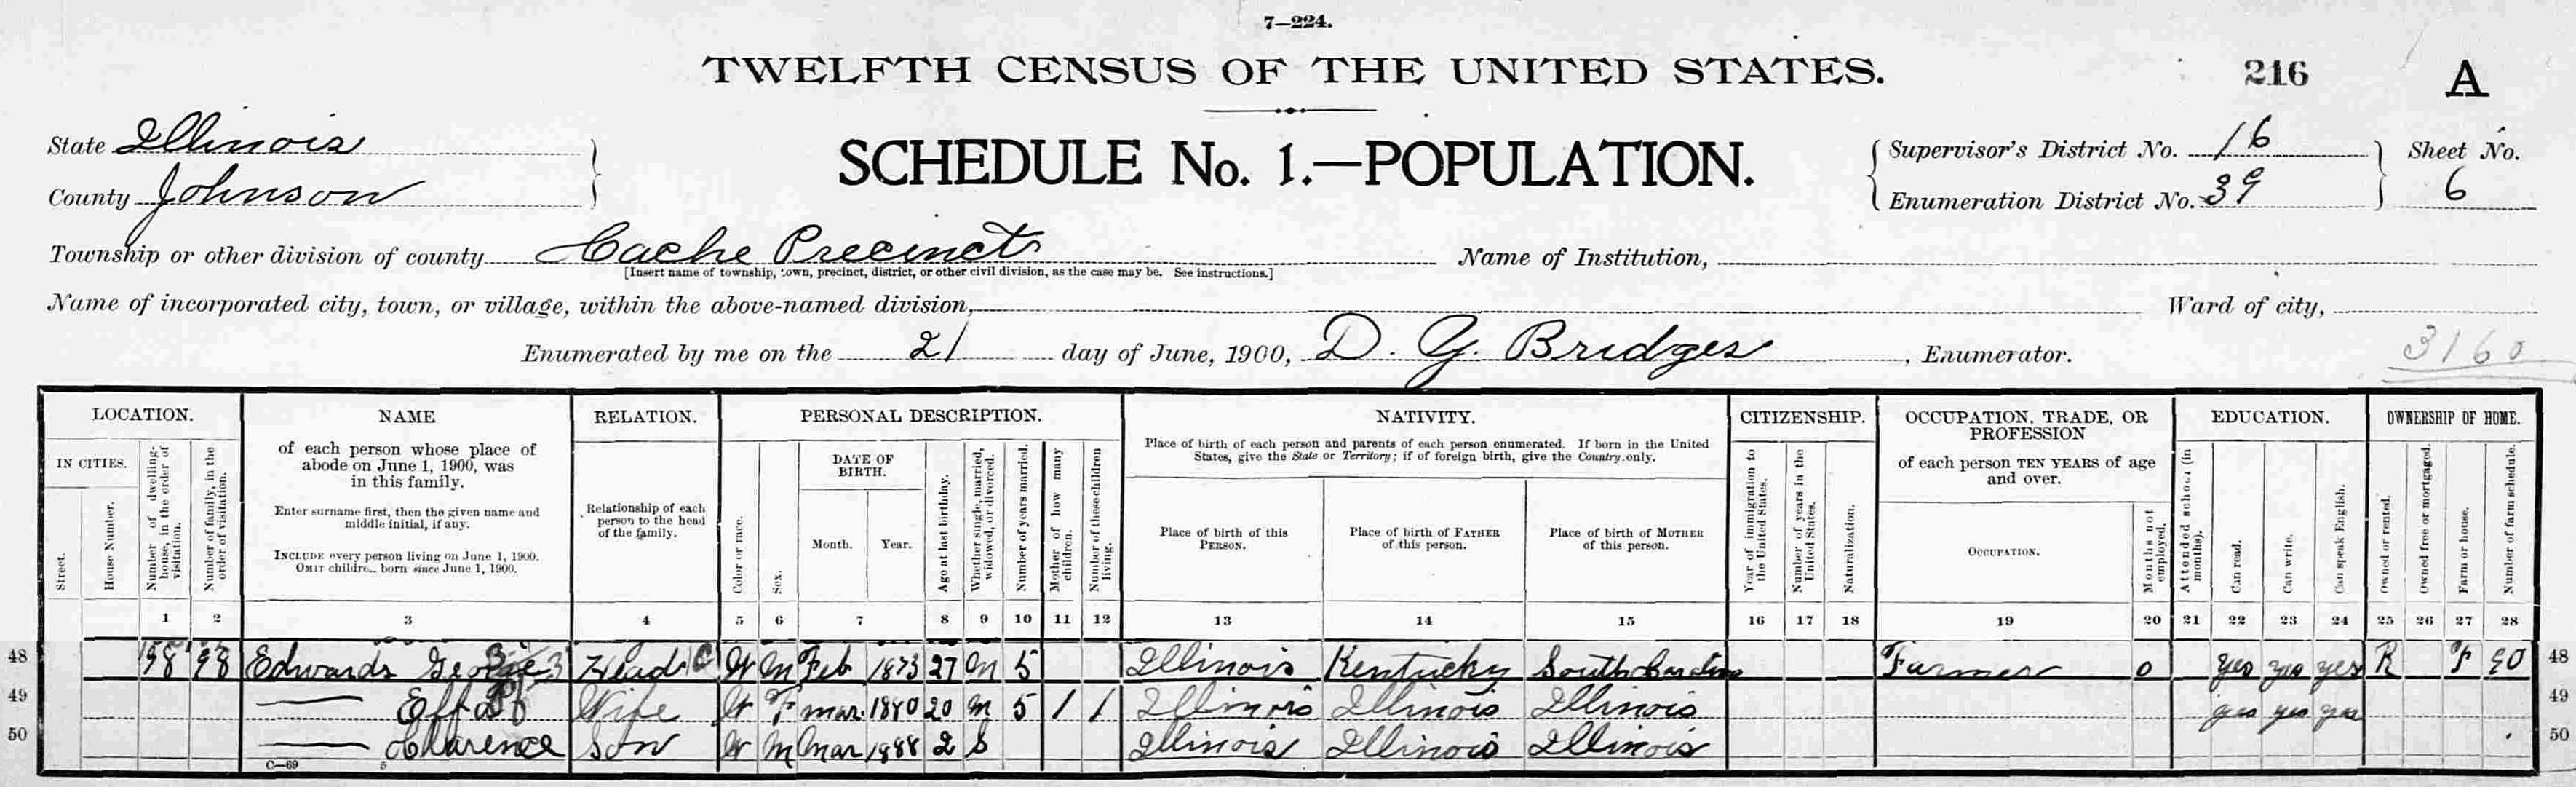 7—224.
TWELFTH CENSUS OF THE UNITED STATES.
216 A
State Illinois
County Johnson
SCHEDULE No. 1.—POPULATION.
Supervisor's District No. 16
Enumeration District No. 39
Sheet No.
6
Township or other division of county Cache Precinct
[Insert name of township, town, precinct, district, or other civil division, as the case may be. See instructions.]
Name of Institution,
Name of incorporated city, town, or village, within the above-named division,
Ward of city,
Enumerated by me on the 21 day of June, 1900, D. G. Bridges, Enumerator.
3160
LOCATION.
IN CITIES.
Street.
House Number.
Number of dwelling-house, in the order of visitation.
Number of family, in the order of visitation.
NAME
of each person whose place of
abode on June 1, 1900, was
in this family.
Enter surname first, then the given name and
middle initial, if any.
INCLUDE every person living on June 1, 1900.
OMIT children born since June 1, 1900.
RELATION.
Relationship of each
person to the head
of the family.
PERSONAL DESCRIPTION.
Color or race.
Sex.
DATE OF
BIRTH.
Month. Year.
Age at last birthday.
Whether single, married, widowed, or divorced.
Number of years married.
Mother of how many children.
Number of these children living.
NATIVITY.
Place of birth of each person and parents of each person enumerated. If born in the United
States, give the State or Territory; if of foreign birth, give the Country only.
Place of birth of this
PERSON.
Place of birth of FATHER
of this person.
Place of birth of MOTHER
of this person.
CITIZENSHIP.
Year of immigration to the United States.
Number of years in the United States.
Naturalization.
OCCUPATION, TRADE, OR
PROFESSION
of each person TEN YEARS of age
and over.
OCCUPATION.
Months not employed.
EDUCATION.
Attended school (in months).
Can read.
Can write.
Can speak English.
OWNERSHIP OF HOME.
Owned or rented.
Owned free or mortgaged.
Farm or house.
Number of farm schedule.
1 2 3 4 5 6 7 8 9 10 11 12 13 14 15 16 17 18 19 20 21 22 23 24 25 26 27 28
48 98 98 Edwards George Head W M Feb 1873 27 M 5 Illinois Kentucky South Carolina Farmer 0 yes yes yes R F 90 48
49 — Wife W F mar 1880 20 M 5 1 1 Illinois Illinois Illinois yes yes yes 49
50 — Clarence Son W M Mar 1888 2 S Illinois Illinois Illinois 50
C—69 5